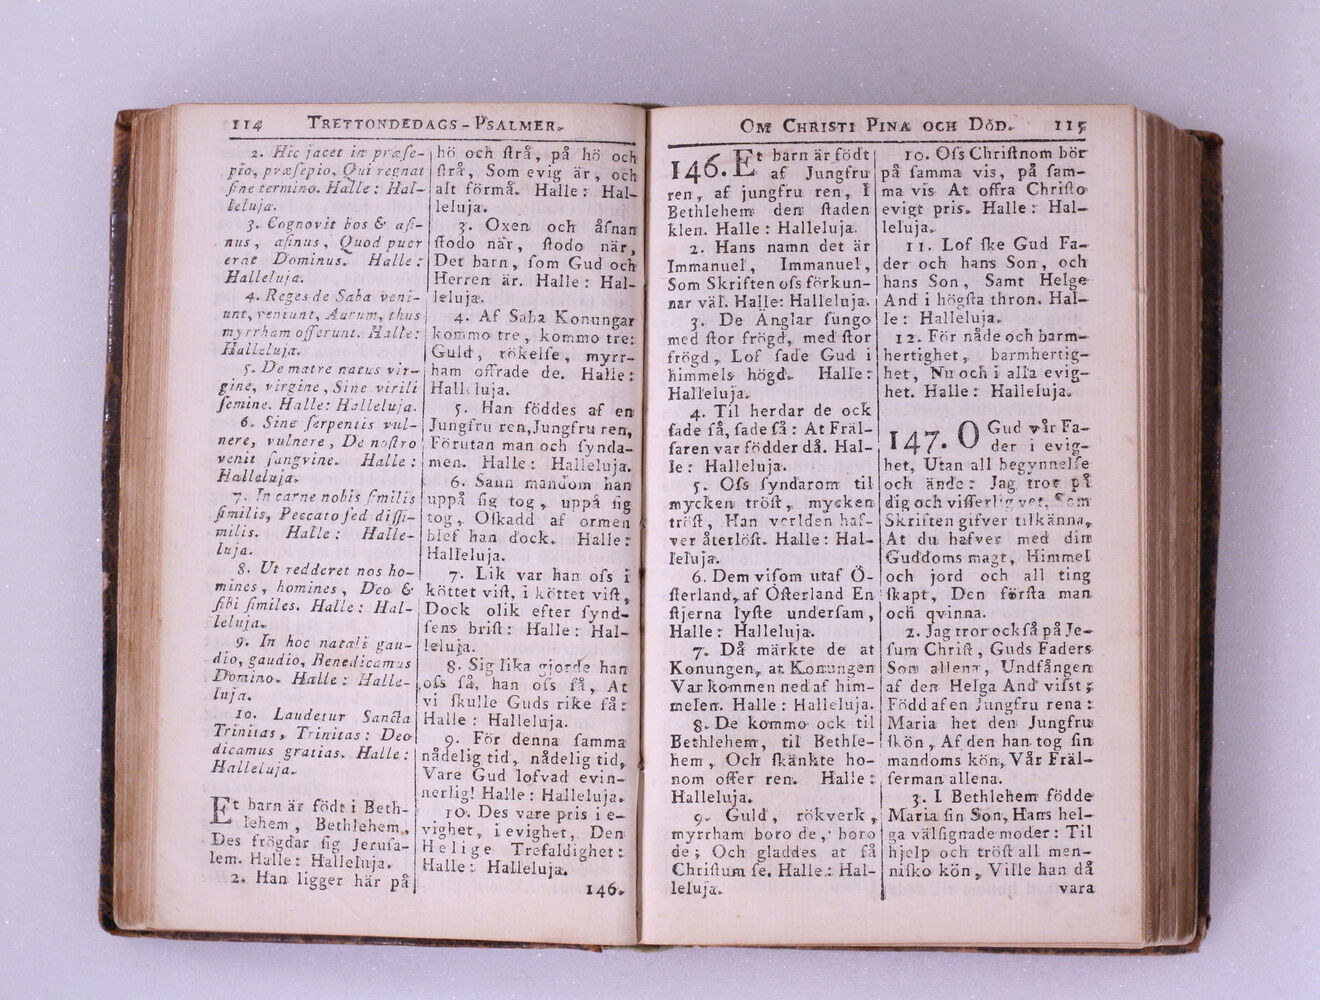 114 TRETTONDEDAGS-PSALMER.
2. Hic jacet in præse-
pio, præsepio, Qui regnat
ſine termino. Halle: Hal-
leluja.
3. Cognovit bos & aſi-
nus, aſinus, Quod puer
erat Dominus. Halle:
Halleluja.
4. Reges de Saba veni-
unt, veniunt, Aurum, thus
myrrham offerunt. Halle:
Halleluja.
5. De matre natus vir-
gine, virgine, Sine virili
ſemine. Halle: Halleluja.
6. Sine ſerpentis vul-
nere, vulnere, De noſtro
venit ſangvine. Halle:
Halleluja.
7. In carne nobis ſimilis
ſimilis, Peccato ſed diſſi-
milis. Halle: Halle-
luja.
8. Ut redderet nos ho-
mines, homines, Deo &
ſibi ſimiles. Halle: Hal-
leluja.
9. In hoc natali gau-
dio, gaudio, Benedicamus
Domino. Halle: Halle-
luja.
10. Laudetur Sancta
Trinitas, Trinitas: Deo
dicamus gratias. Halle:
Halleluja.
Et barn är födt i Beth-
lehem, Bethlehem,
Des frögdar ſig Jeruſa-
lem. Halle: Halleluja.
2. Han ligger här på
hö och ſtrå, på hö och
ſtrå, Som evig är, och
alt förmå. Halle: Hal-
leluja.
3. Oxen och åſnan
ſtodo när, ſtodo när,
Det barn, ſom Gud och
Herren är. Halle: Hal-
leluja.
4. Af Saba Konungar
kommo tre, kommo tre:
Guld, rökelſe, myrr-
ham offrade de. Halle:
Halleluja.
5. Han föddes af en
Jungfru ren, Jungfru ren,
Förutan man och ſynda-
men. Halle: Halleluja.
6. Sann mandom han
uppå ſig tog, uppå ſig
tog, Oſkadd af ormen
blef han dock. Halle:
Halleluja.
7. Lik var han oſs i
köttet viſt, i köttet viſt,
Dock olik efter ſynd-
ſens briſt: Halle: Hal-
leluja.
8. Sig lika gjorde han
oſs ſå, han oſs ſå, At
vi ſkulle Guds rike få:
Halle: Halleluja.
9. För denna ſamma
nådelig tid, nådelig tid,
Vare Gud lofvad evin-
nerlig! Halle: Halleluja.
10. Des vare pris i e-
vighet, i evighet, Den
Helige Trefaldighet:
Halle: Halleluja.
146.
OM CHRISTI PINA OCH DÖD. 115
146. Et barn är födt
af Jungfru
ren, af jungfru ren, I
Bethlehem den ſtaden
klen. Halle: Halleluja.
2. Hans namn det är
Immanuel, Immanuel,
Som Skriften oſs förkun-
nar väl. Halle: Halleluja.
3. De Änglar ſungo
med ſtor frögd, med ſtor
frögd, Lof ſade Gud i
himmels högd. Halle:
Halleluja.
4. Til herdar de ock
ſade ſå, ſade ſå: At Fräl-
ſaren var födder då. Hal-
le: Halleluja.
5. Oſs ſyndarom til
mycken tröſt, mycken
tröſt, Han verlden haf-
ver återlöſt. Halle: Hal-
leluja.
6. Dem viſom utaf Ö-
ſterland, af Öſterland En
ſtjerna lyſte underſam,
Halle: Halleluja.
7. Då märkte de at
Konungen, at Konungen
Var kommen ned af him-
melen. Halle: Halleluja.
8. De kommo ock til
Bethlehem, til Bethle-
hem, Och ſkänkte ho-
nom offer ren. Halle:
Halleluja.
9. Guld, rökverk,
myrrham boro de, boro
de; Och gladdes at få
Chriſtum ſe. Halle: Hal-
leluja.
10. Oſs Chriſtnom bör
på ſamma vis, på ſam-
ma vis At offra Chriſto
evigt pris. Halle: Hal-
leluja.
11. Lof ſke Gud Fa-
der och hans Son, och
hans Son, Samt Helge
And i högſta thron. Hal-
le: Halleluja.
12. För nåde och barm-
hertighet, barmhertig-
het, Nu och i alla evig-
het. Halle: Halleluja.
147. O Gud vår Fa-
der i evig-
het, Utan all begynnelſe
och ände: Jag tror på
dig och viſſerlig vet, Som
Skriften gifver tilkänna,
At du hafver med din
Guddoms magt, Himmel
och jord och all ting
ſkapt, Den förſta man
och qvinna.
2. Jag tror ockſå på Je-
ſum Chriſt, Guds Faders
Son allena, Undfången
af den Helga And' viſst;
Född af en Jungfru rena:
Maria het den Jungfru
ſkön, Af den han tog ſin
mandoms kön, Vår Fräl-
ſerman allena.
3. I Bethlehem födde
Maria ſin Son, Hans hel-
ga välſignade moder: Til
hjelp och tröſt all men-
niſko kön, Ville han då
vara